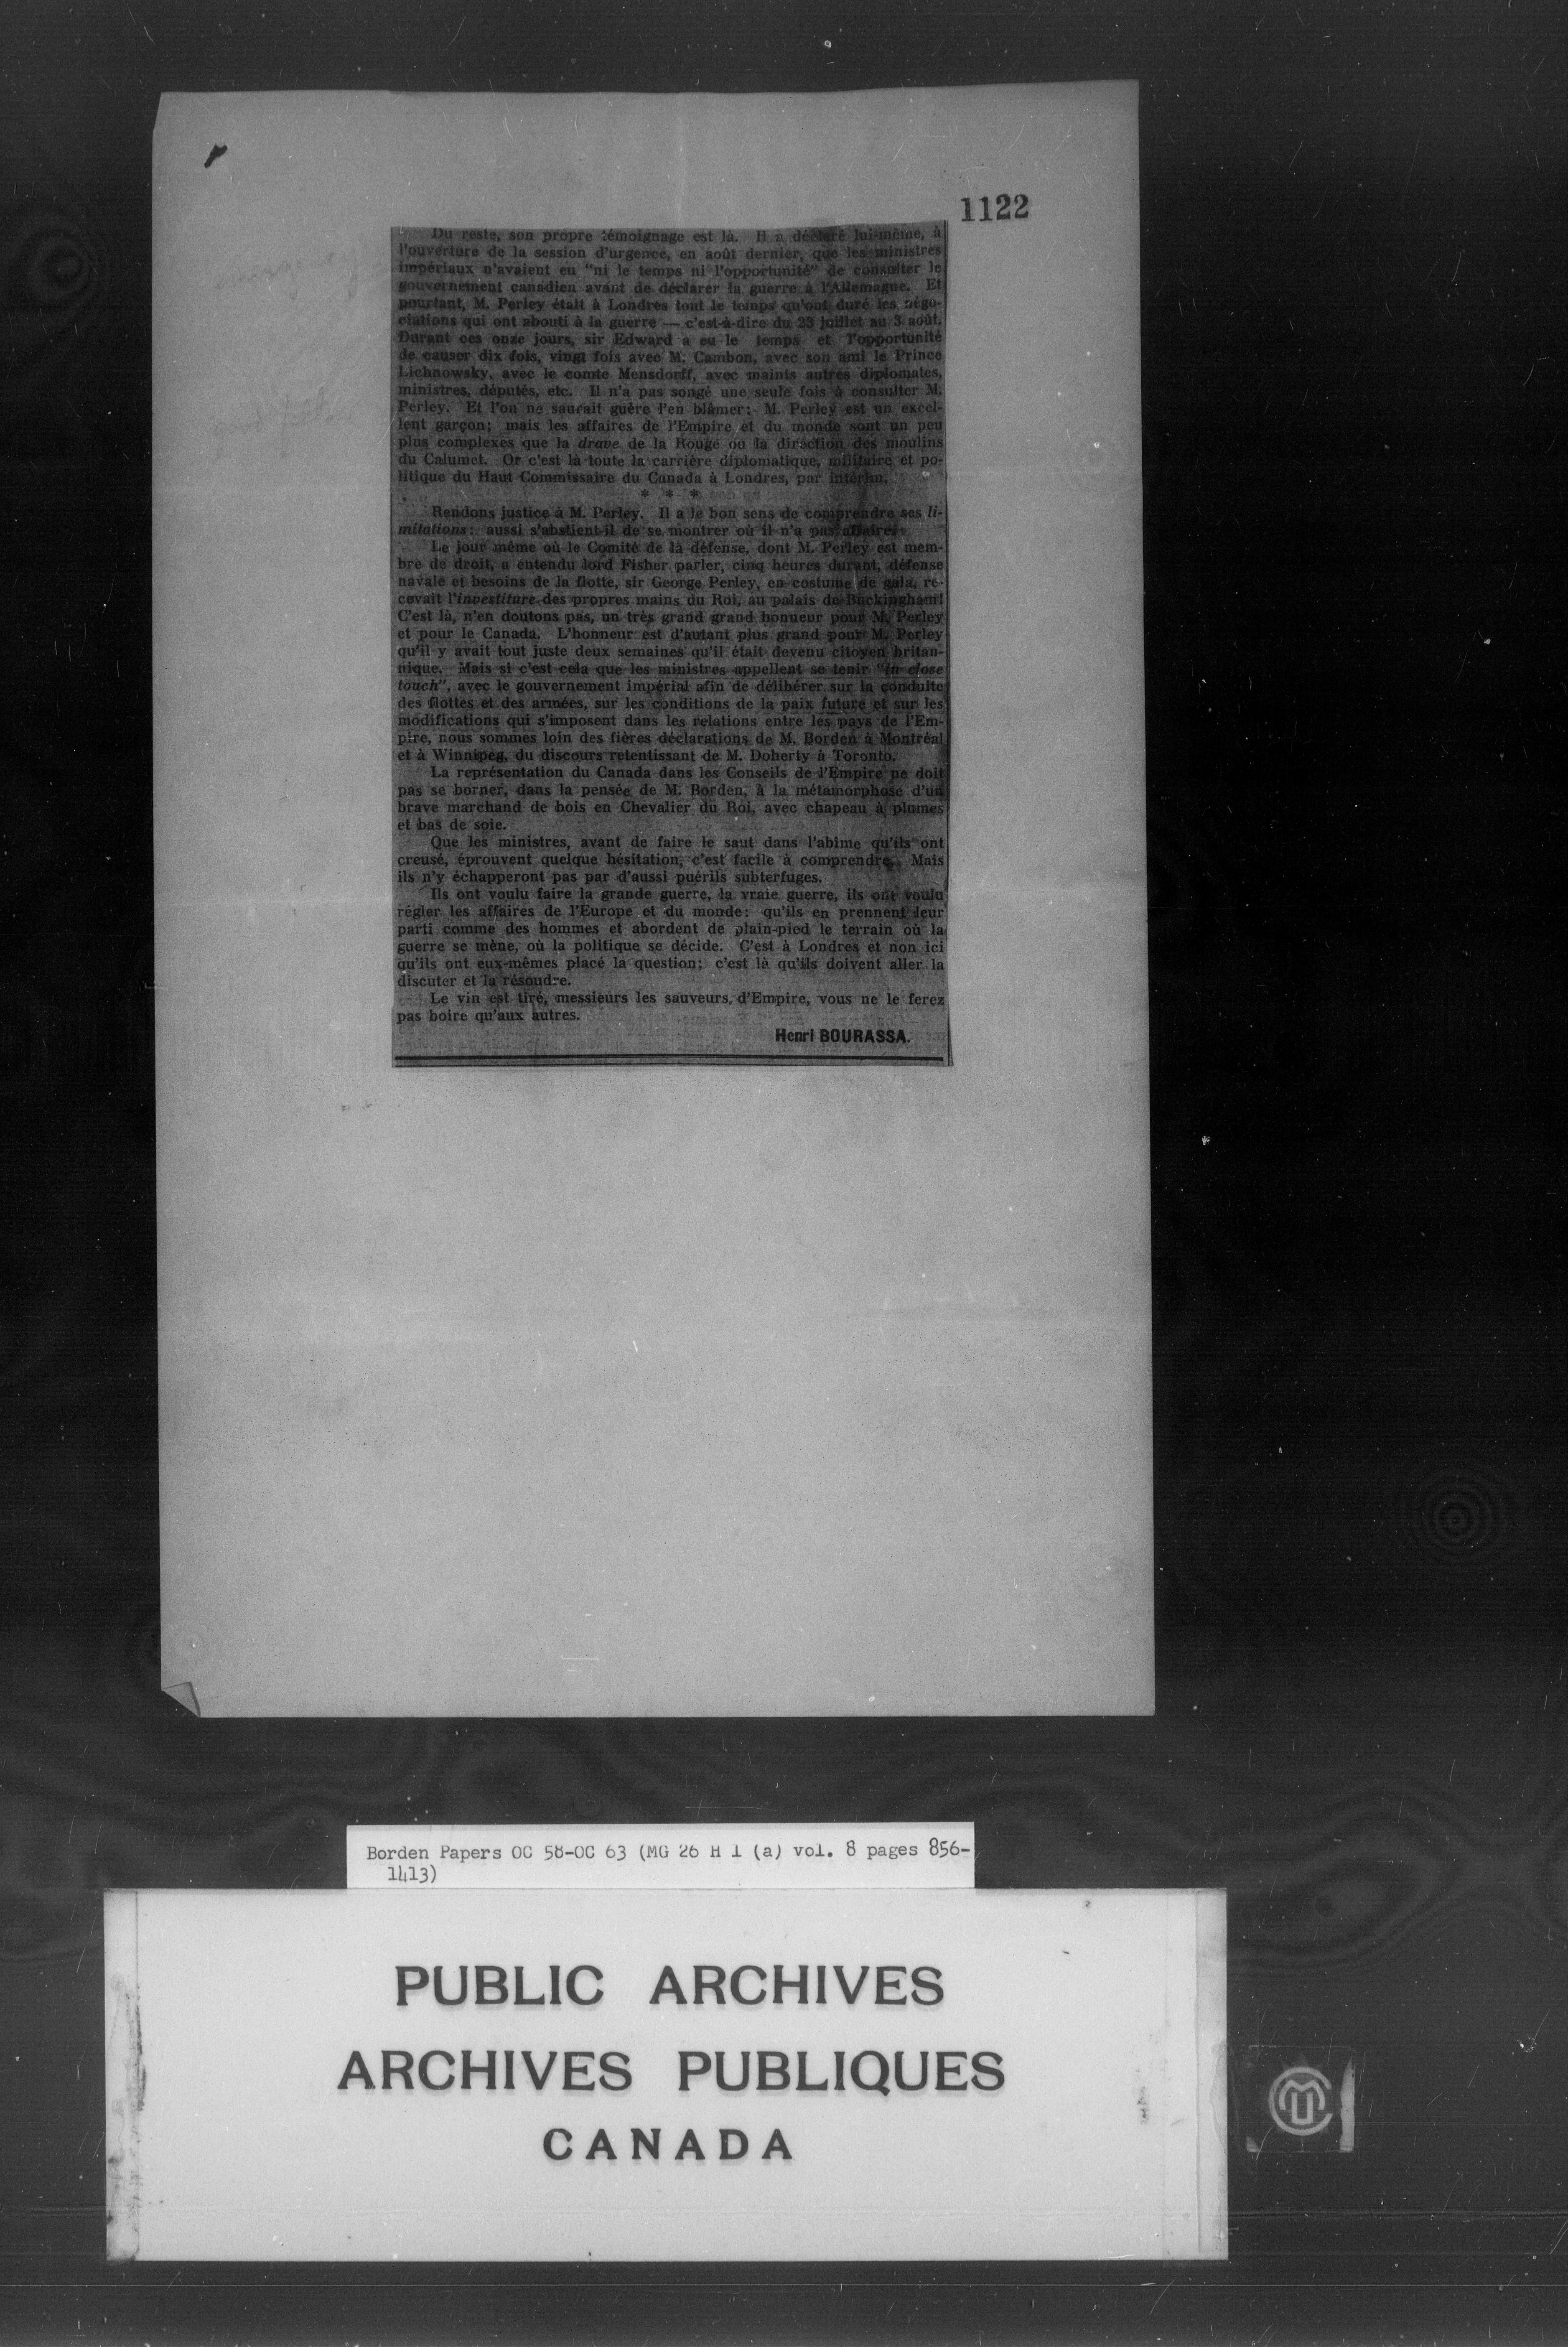 1122
Du reste, son propre témoignage est là. Il a déclaré lui-même, à
l'ouverture de la session d'urgence, en août dernier, que les ministres
impériaux n'avaient eu "ni le temps ni l'opportunité" de consulter le
gouvernement canadien avant de déclarer la guerre à l'Allemagne. Et
pourtant, M. Perley était à Londres tout le temps qu'ont duré les négo-
ciations qui ont abouti à la guerre — c'est-à-dire du 23 juillet au 3 août.
Durant ces onze jours, sir Edward a eu le temps et l'opportunité
de causer dix fois, vingt fois avec M. Cambon, avec son ami le Prince
Lichnowsky, avec le comte Mensdorff, avec maints autres diplomates,
ministres, députés, etc. Il n'a pas songé une seule fois à consulter M.
Perley. Et l'on ne saurait guère l'en blâmer: M. Perley est un excel-
lent garçon; mais les affaires de l'Empire et du monde sont un peu
plus complexes que la drave de la Rouge ou la direction des moulins
du Calumet. Or c'est là toute la carrière diplomatique, militaire et po-
litique du Haut Commissaire du Canada à Londres, par intérim.
* * *
Rendons justice à M. Perley. Il a le bon sens de comprendre ses li-
mitations: aussi s'abstient-il de se montrer où il n'a pas affaire.
Le jour même où le Comité de la défense, dont M. Perley est mem-
bre de droit, a entendu lord Fisher parler, cinq heures durant, défense
navale et besoins de la flotte, sir George Perley, en costume de gala, re-
cevait l'investiture des propres mains du Roi, au palais de Buckingham!
C'est là, n'en doutons pas, un très grand grand honueur pour M. Perley
et pour le Canada. L'honneur est d'autant plus grand pour M. Perley
qu'il y avait tout juste deux semaines qu'il était devenu citoyen britan-
nique. Mais si c'est cela que les ministres appellent se tenir "in close
touch", avec le gouvernement impérial afin de délibérer sur la conduite
des flottes et des armées, sur les conditions de la paix future et sur les
modifications qui s'imposent dans les relations entre les pays de l'Em-
pire, nous sommes loin des fières déclarations de M. Borden à Montréal
et à Winnipeg, du discours retentissant de M. Doherty à Toronto.
La représentation du Canada dans les Conseils de l'Empire ne doit
pas se borner, dans la pensée de M. Borden, à la métamorphose d'un
brave marchand de bois en Chevalier du Roi, avec chapeau à plumes
et bas de soie.
Que les ministres, avant de faire le saut dans l'abîme qu'ils ont
creusé, éprouvent quelque hésitation, c'est facile à comprendre. Mais
ils n'y échapperont pas par d'aussi puérils subterfuges.
Ils ont voulu faire la grande guerre, la vraie guerre, ils ont voulu
régler les affaires de l'Europe et du monde: qu'ils en prennent leur
parti comme des hommes et abordent de plain-pied le terrain où la
guerre se mène, où la politique se décide. C'est à Londres et non ici
qu'ils ont eux-mêmes placé la question; c'est là qu'ils doivent aller la
discuter et la résoudre.
Le vin est tiré, messieurs les sauveurs d'Empire, vous ne le ferez
pas boire qu'aux autres.
Henri BOURASSA.
Borden Papers OC 58-OC 63 (MG 26 H 1 (a) vol. 8 pages 856-
1413)
PUBLIC ARCHIVES
ARCHIVES PUBLIQUES
CANADA